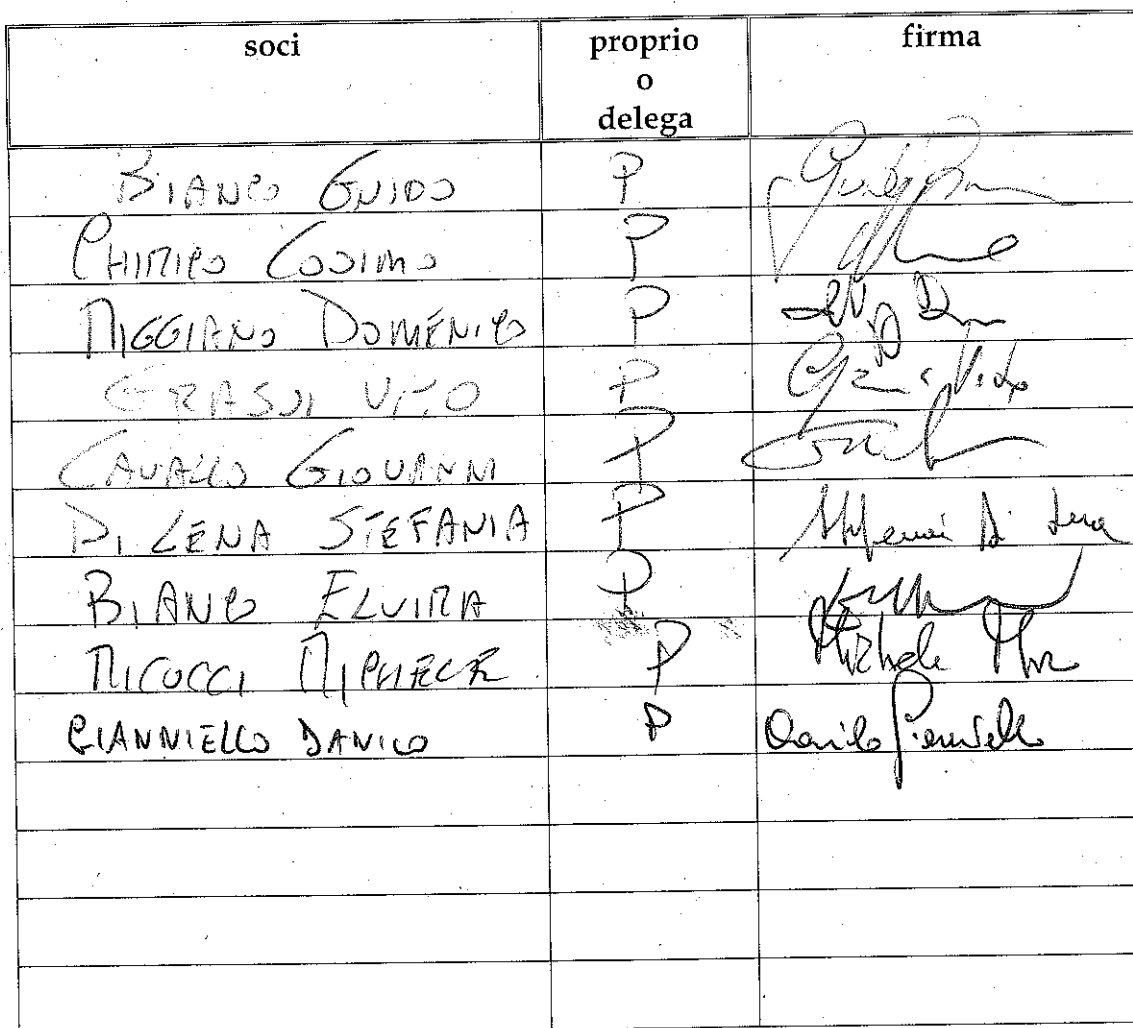 soci proprio o delega firma
BIANCO GUIDO P
CHIMICO COSIMO P
MIGGIANO DOMENICO P
GRASSI VITO P
CAVALLO GIOVANNI P
DI LENA STEFANIA P Stefania Di Lena
BIANCO ELVIRA P
MICOCCI MICHELE P Michele
GIANNIELLO DANILO P Danilo Gianniello